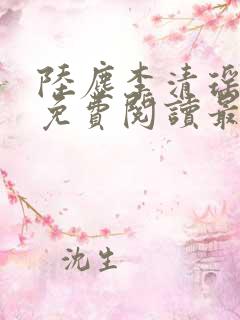 陸塵李清
免費閱讀最
沈生